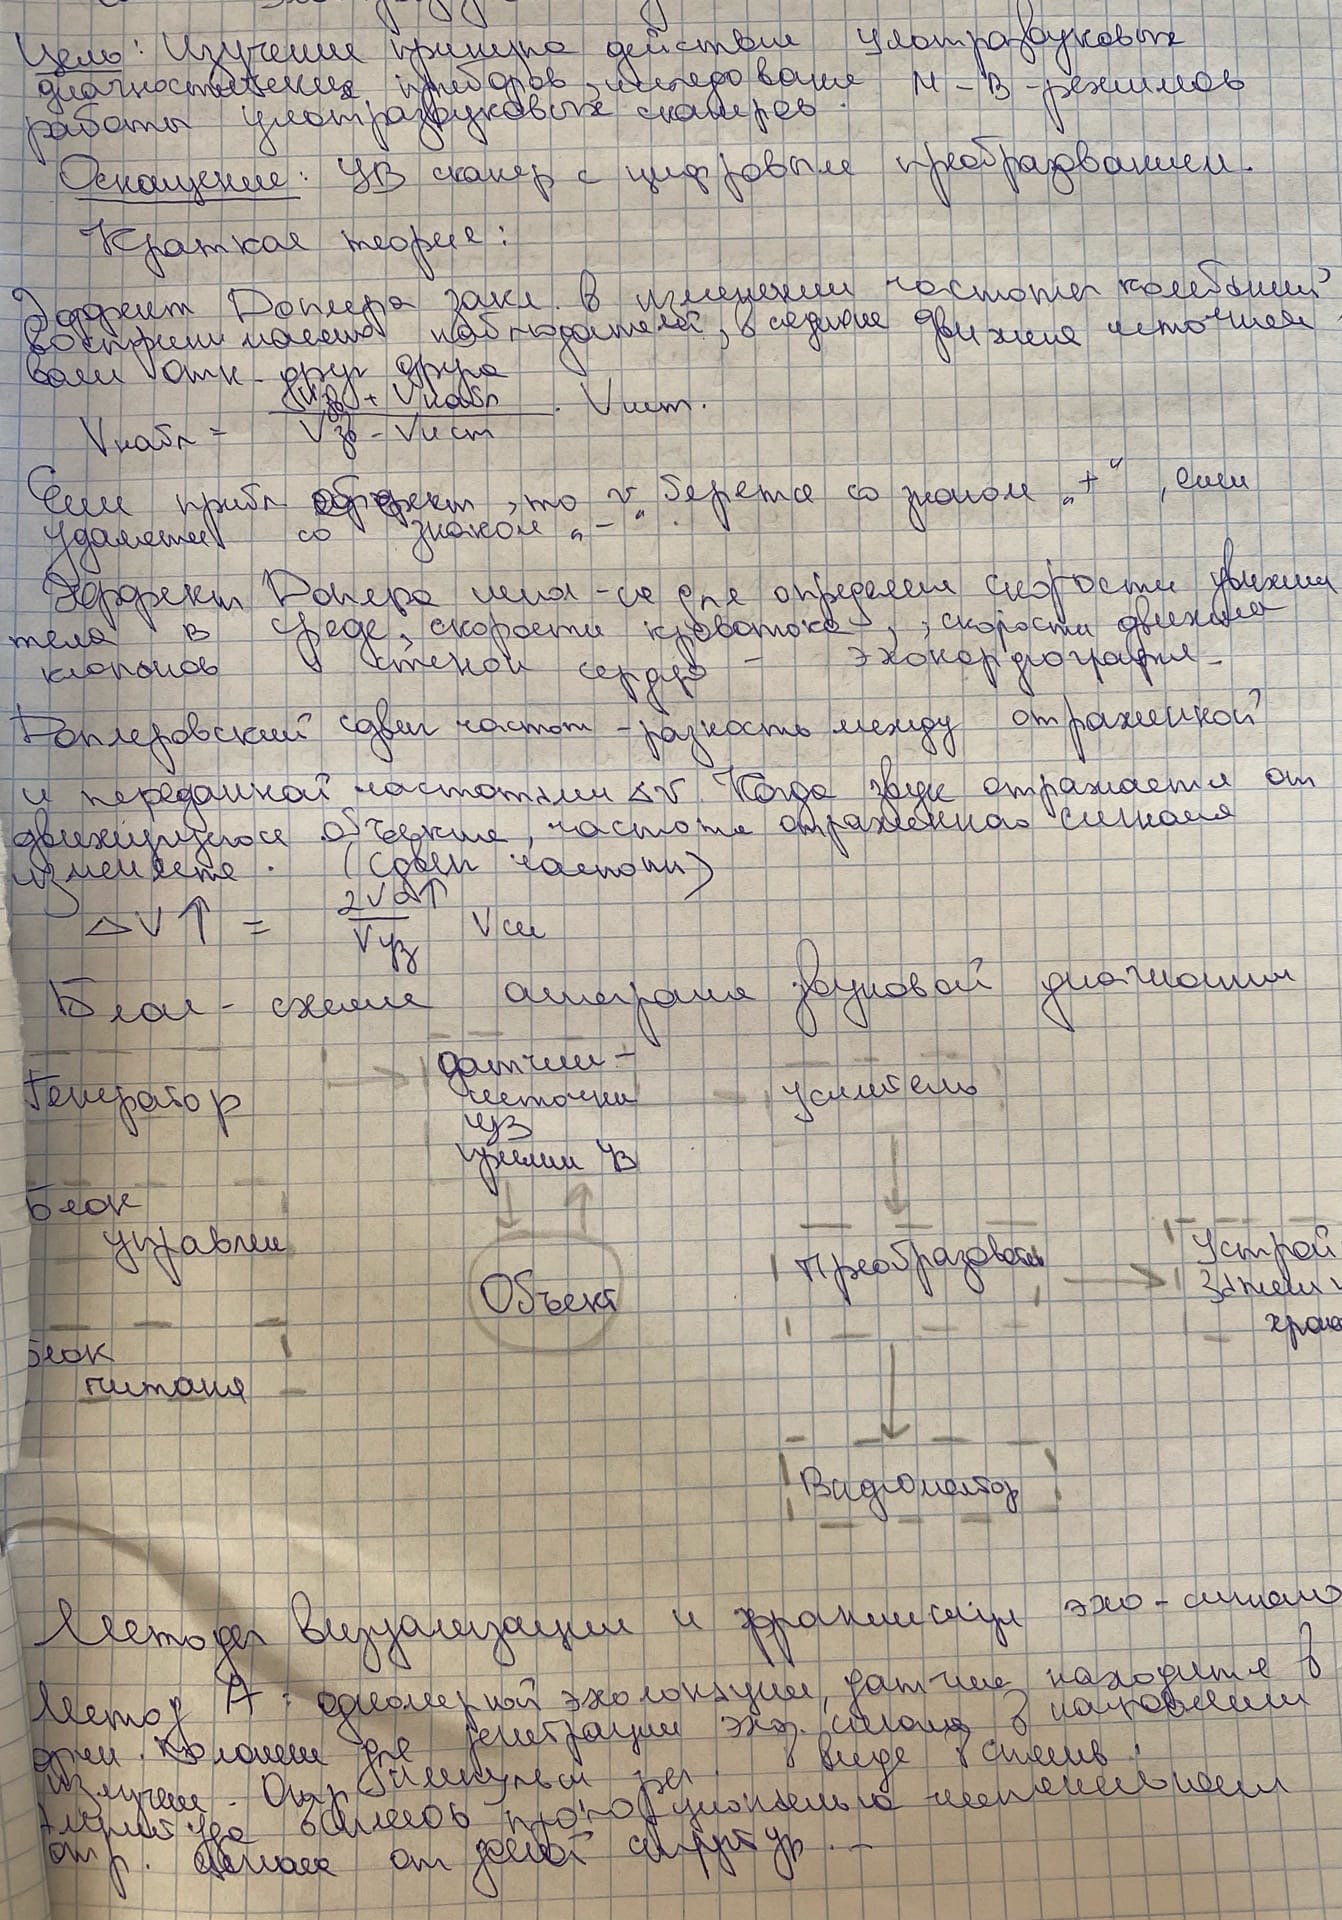 Цель: Изучение принципа действия ультразвуковых
диагностических приборов, исследование М-В-режимов
работы ультразвуковых сканеров.
Оснащение: УЗ сканер с цифровым преобразованием.
Краткая теория:
Эффект Доплера закл. в изменении частоты колебаний
воспринимаемой наблюдателей, в следствие движения источника
волн отн. друг друга
Vнабл = (Vзв + Vнабл)/(Vзв - Vист) · Vист.
Если прибл объект, то v берется со знаком „+“, если
удаляется со знаком „-“.
Эффект Доплера исп-ся для определения скорости движения
тела в среде, скорости кровотока, скорости движения
клапанов стенок сердца - эхокардиография
Доплеровский сдвиг частот - разность между отраженной
и переданной частотами ΔV. Когда звук отражается от
движущегося объекта, частота отраженного сигнала
изменяется. (сдвиг частоты)
ΔV↑ =
Блок-схема аппарата звуковой диагностики
Генератор
датчик-
источник
УЗ
приемник УЗ
усилитель
Блок
управлен
Объект
Преобразователь
Устрой
записи
хране
Блок
питания
Видиомонитор
Методы визуализации и эхо-сигнала
Метод А: одномерной эхолокации, датчик находится в
для регистрации эхо. сигнала в направлении
излучен. импульсы в виде
амплитуда пропорциональна интенсивности
отр. сигнала от данной структур.